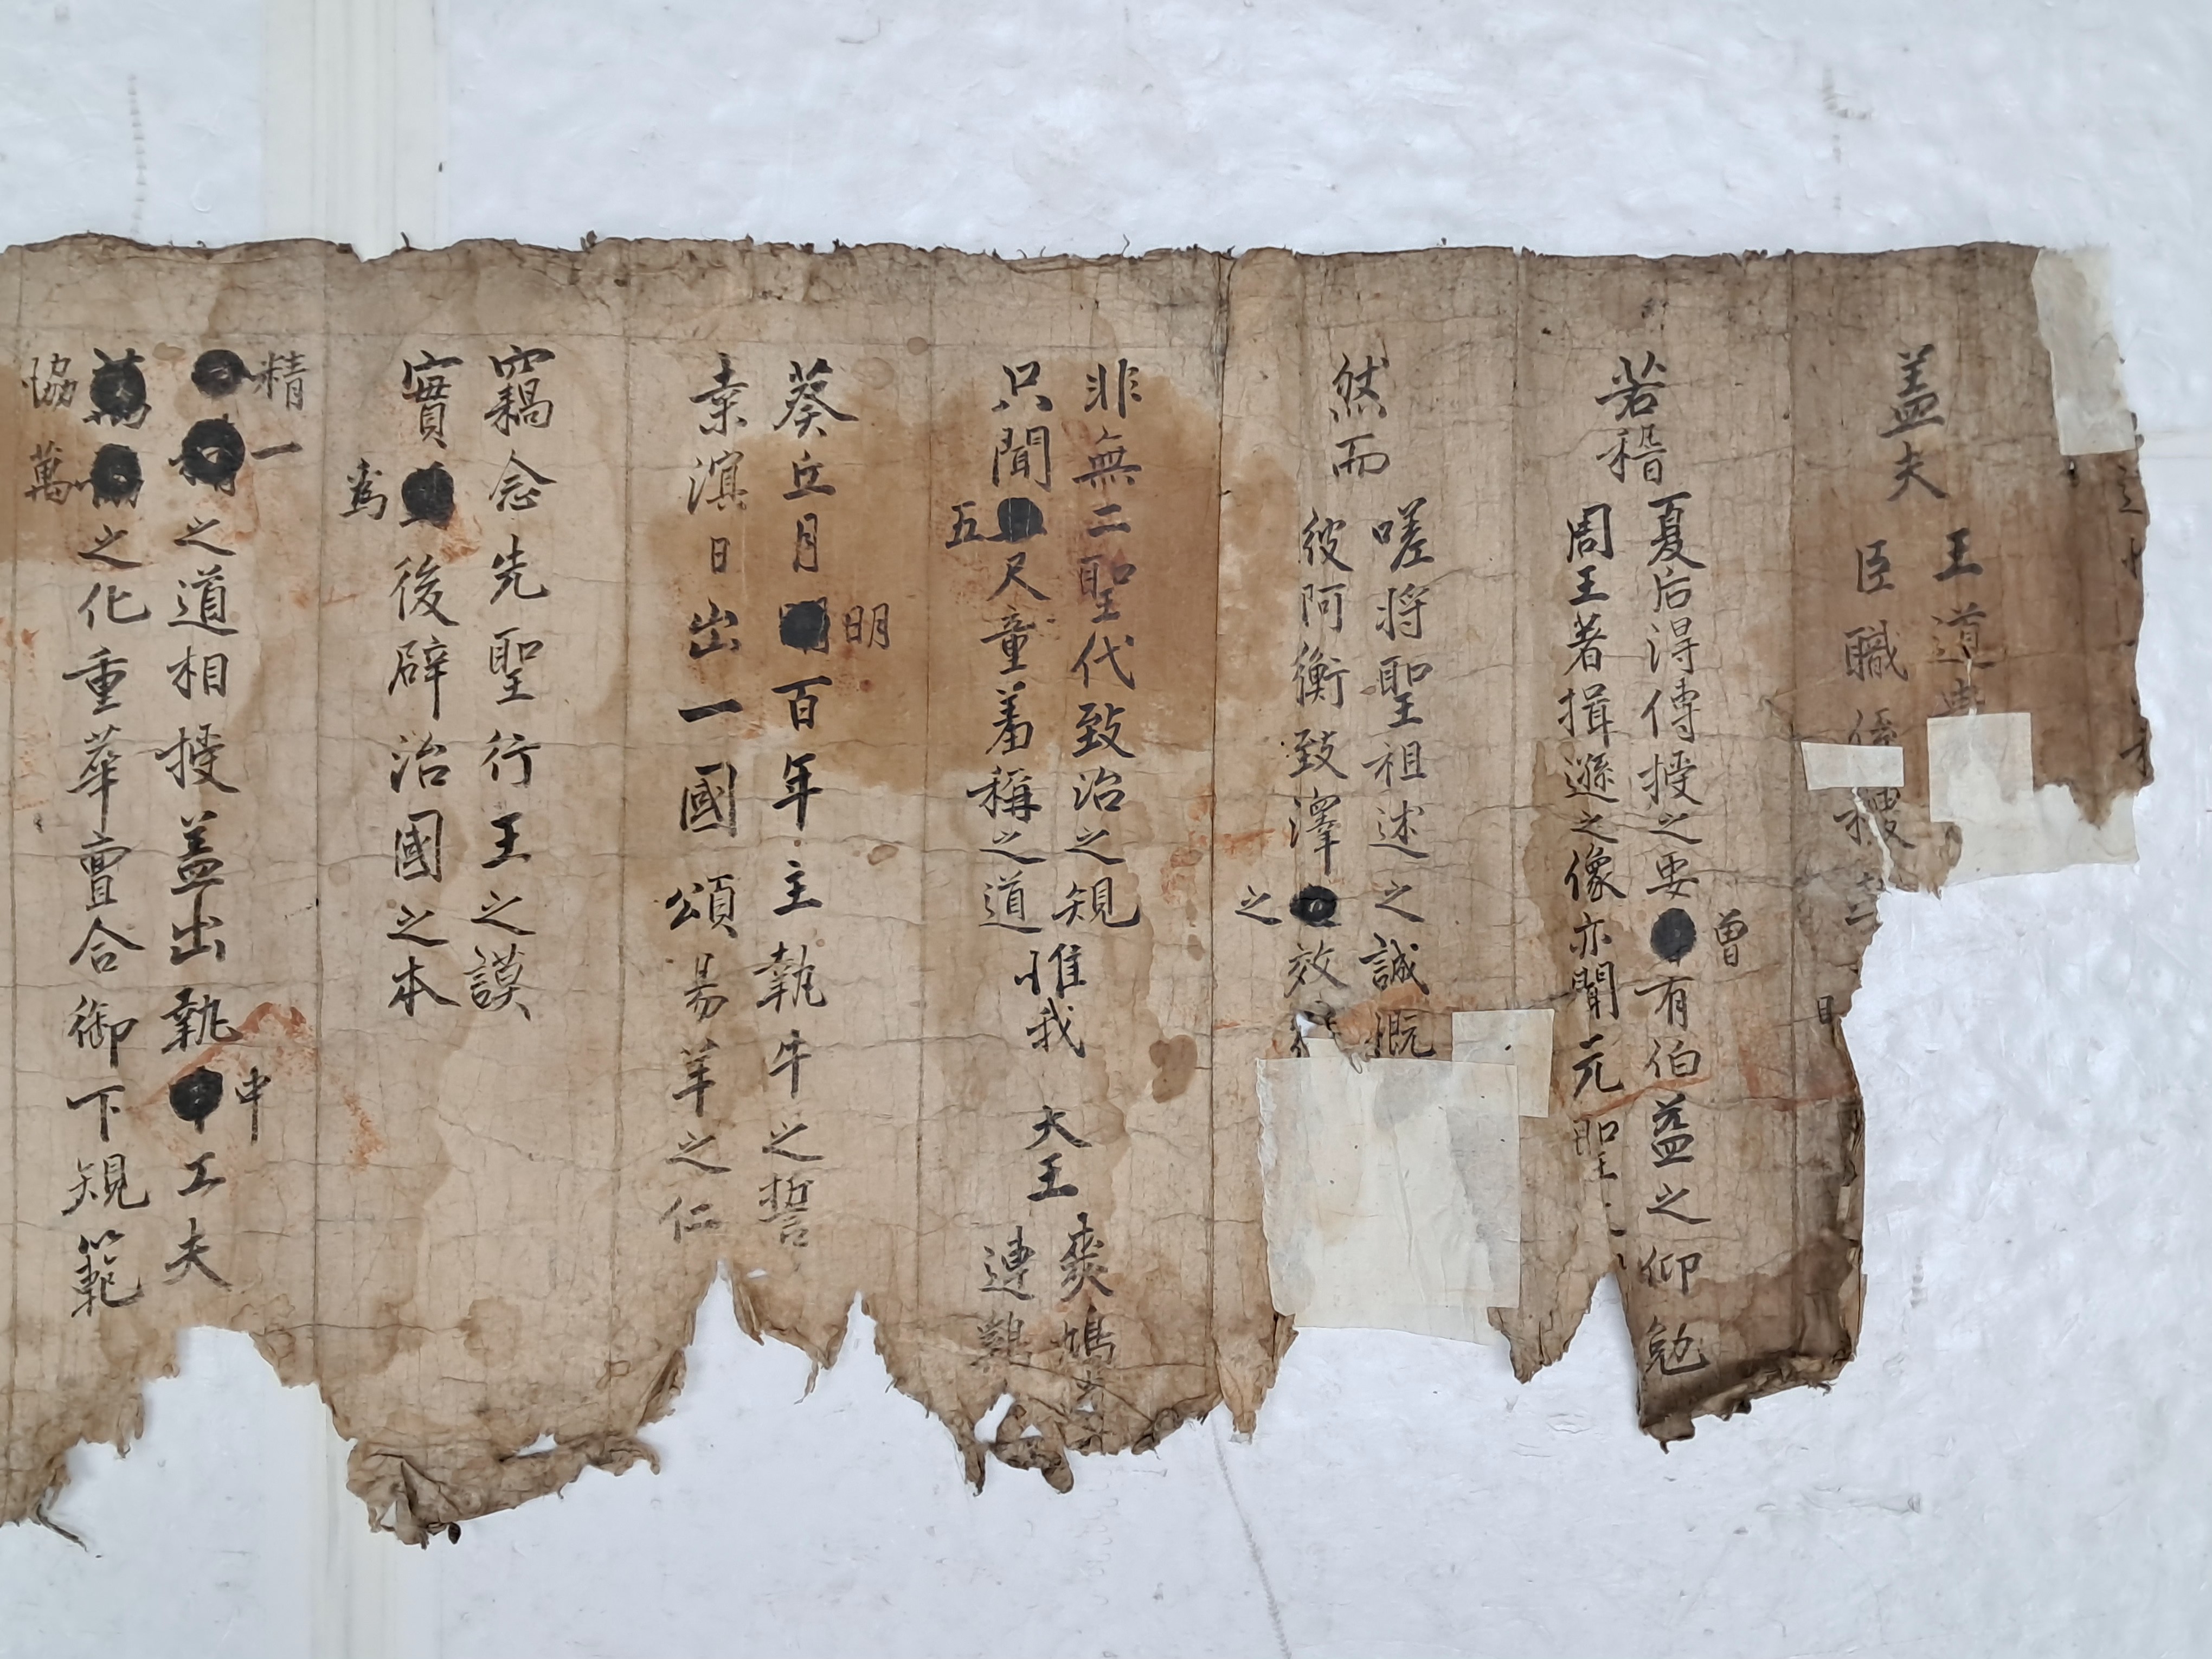 盖夫
王道
臣職係
若稽
夏后得傳授之要曾有伯益之仰勉
周王著揖遜之像亦聞元聖
然而
嗟將聖祖述之誠慨
彼阿衡致澤之效
非無二聖代致治之規
只聞五尺童羞稱之道
惟我 大王
爽鳩
連
葵丘月明百年主執牛之誓
東濱日出一國頌易羊之仁
竊念先聖行王之謨
實爲後辟治國之本
精一之道相授盖出執中工夫
協萬之化重華亶合御下規範